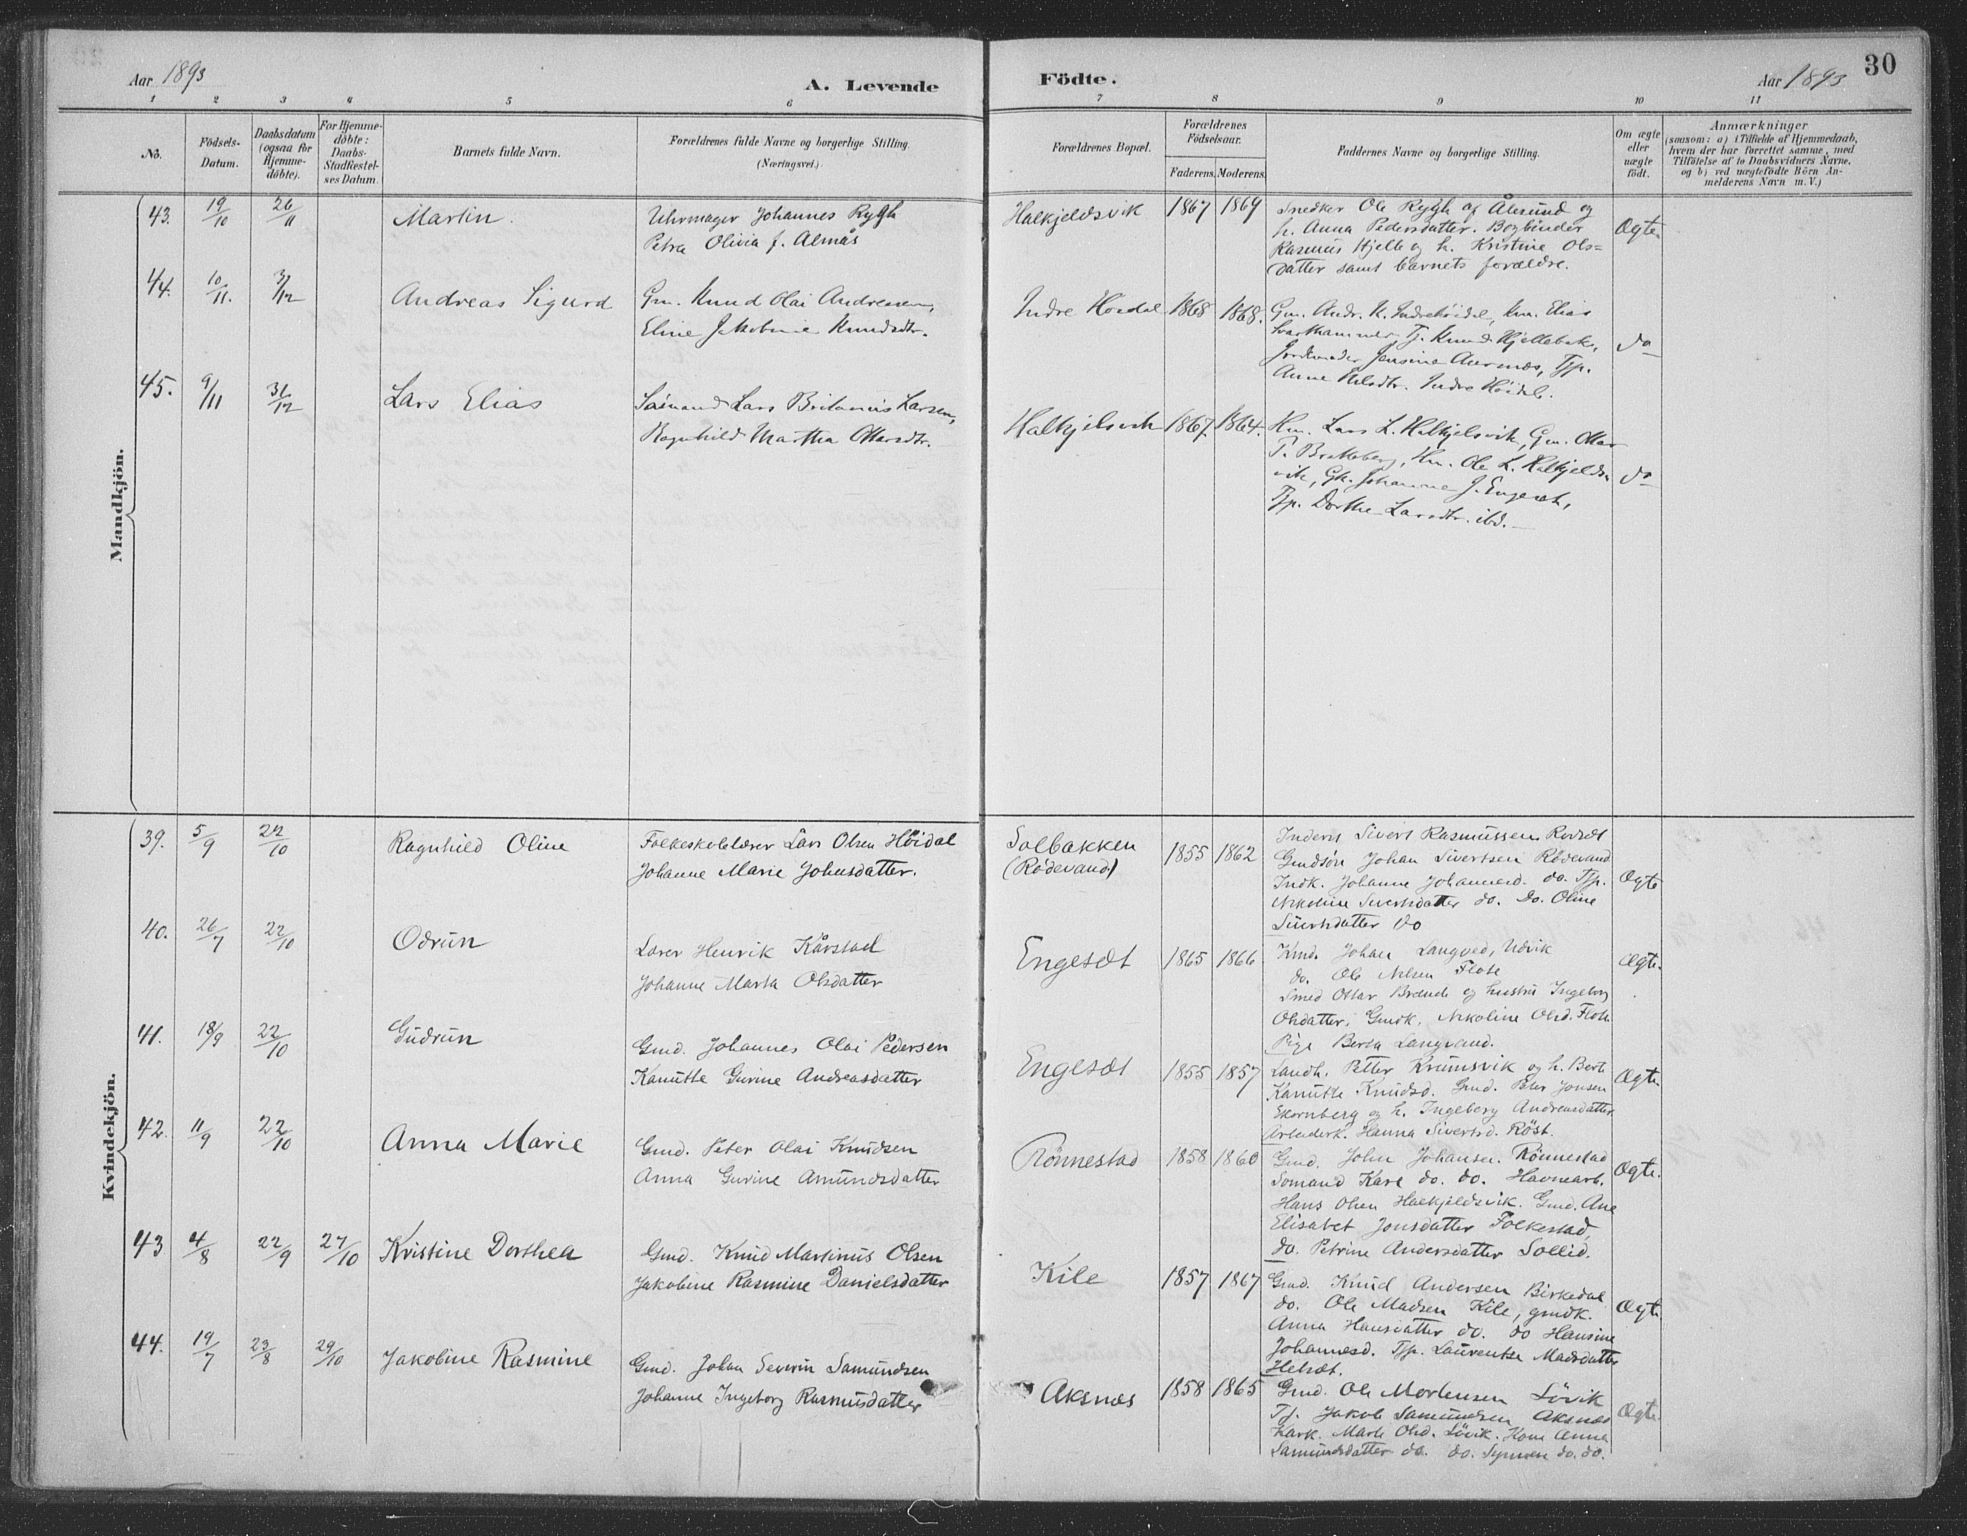 Aar 1893
A. Levende
Födte.
Aar 1893
30
1 2 3 4 5 6 7 8 9 10 11
No.
Födsels-
Datum.
Daabsdatum
(ogsaa for
Hjemme-
døbte).
For Hjemme-
döbte:
Daabs-
Stadfæstel-
ses Datum.
Barnets fulde Navn.
Forældrenes fulde Navne og borgerlige Stilling.
(Næringsvei.)
Forældrenes Bopæl.
Forældrenes
Födselsaar.
Faderens. Moderens.
Faddernes Navne og borgerlige Stilling.
Om ægte
eller
uægte
födt.
Anmærkninger
(saasom: a) i Tilfælde af Hjemmedaab,
hvem der har forrettet samme, med
Tilföielse af to Daabsvidners Navne,
og b) ved uægtefödte Börn An-
melderens Navn m. V.)
Mandkjön.
43. 19/10 26/11 Martin. Uhrmager Johannes Rygh
Petra Olivia f. Almås
Halkjeldsvik 1867 1869
Snedker Ole Rygh af Ålesund og
h. Anna Pedersdatter. Bogbinder
Rasmus Hjelle og h. Kristine Ols=
datter samt barnets forældre.
Ægte.
44. 10/11. 3/12 Andreas Sigurd Gm. Knud Olai Andreasen,
Eline Jakobine Knudsdtr.
Indre Høidal 1868 1868.
Gm. Andr. K. Indrehöidal, Um. Elias
Svarthammer, Tj. Knud Hjellebak,
Jordmoder Jensine Aurnæs, Tjp.
Anne Nilsdtr. Indre Höidal.
do
45. 9/11 31/12 Lars Elias Sömand Lars Britanus Larsen,
Ragnhild Martha Ottarsdtr.
Halkjelsvik 1867. 1864.
Hm. Lars L. Halkjelsvik, Gm. Ottar
P. Brekkeberg, Hm. Ole L. Halkjelds
vik, Gk. Johanne J. Engeset,
Tjp. Dorthe Larsdtr. ibd.
do
Kvindekjön.
39. 5/9 22/10 Ragnhild Oline Folkeskolelærer Lars Olsen Höidal
Johanne Marie Johnsdatter.
Solbakken
(Rødevand)
1855 1862
Inderst Sivert Rasmussen Rodset
Gmdsön Johan Sivertsen Rödevand
Indk. Johanne Johannesd. do. Tjp.
Nikoline Sivertsdatter do. Do. Oline
Sivertsdatter do
Ægte
40. 26/7 22/10 Odrun Lærer Henrik Kårstad
Johanne Marta Olsdatter
Engesæt 1865 1866
Kmd. Johan Langved, Udvik
do. Ole Nilsen Flote
Smed Ottar Brænde og hustru Ingeborg
Olsdatter. Gmdk. Nikoline Olsd. Flote
Pige Berta Langvand.
Ægte.
41. 18/9 22/10 Gudrun Gmd. Johannes Olai Pedersen
Kanutte Gurine Andreasdatter
Engesæt 1855 1857
Landh. Petter Krumsvik og h. Bert
Kanutte Knudsd. Gmd. Peter Jonsen
Ekornberg og h. Ingeborg Andreasdatter
Arbeiderk. Hanna Sivertsd. Röst.
Ægte.
42. 11/9 22/10 Anna Marie Gmd. Peter Olai Knudsen
Anna Gurine Amundsdatter
Rönnestad 1858 1860
Gmd. John Johansen Rönnestad
Somand Karl do. do. Havnearb.
Hans Olsen Halkjeldsvik. Gmd. Ane
Elisabet Jonsdatter Folkestad,
do. Petrine Andersdatter Sollid.
Ægte.
43 4/8 22/9 27/10 Kristine Dorthea Gmd. Knud Martinus Olsen
Jakobine Rasmine Danielsdatter
Kile 1857 1867
Gmd. Knud Andersen Birkedal
do. Ole Madsen Kile, gmdk.
Anna Hansdatter do. do Hansine
Johannesd. Tjp. Laurentse Madsdatter
Helsæt.
Ægte.
44. 19/7 23/8 29/10 Jakobine Rasmine Gmd. Johan Severin Samundsen
Johanne Ingeborg Rasmusdatter
Aksnæs 1858 1865
Gmd. Ole Mortensen Lövik
Tj. Jakob Samundsen Aksnæs
Kark. Marte Olsd. Lövik. Kone Anna
Samundsdatter do. do. Synneve do. do.
Ægte.